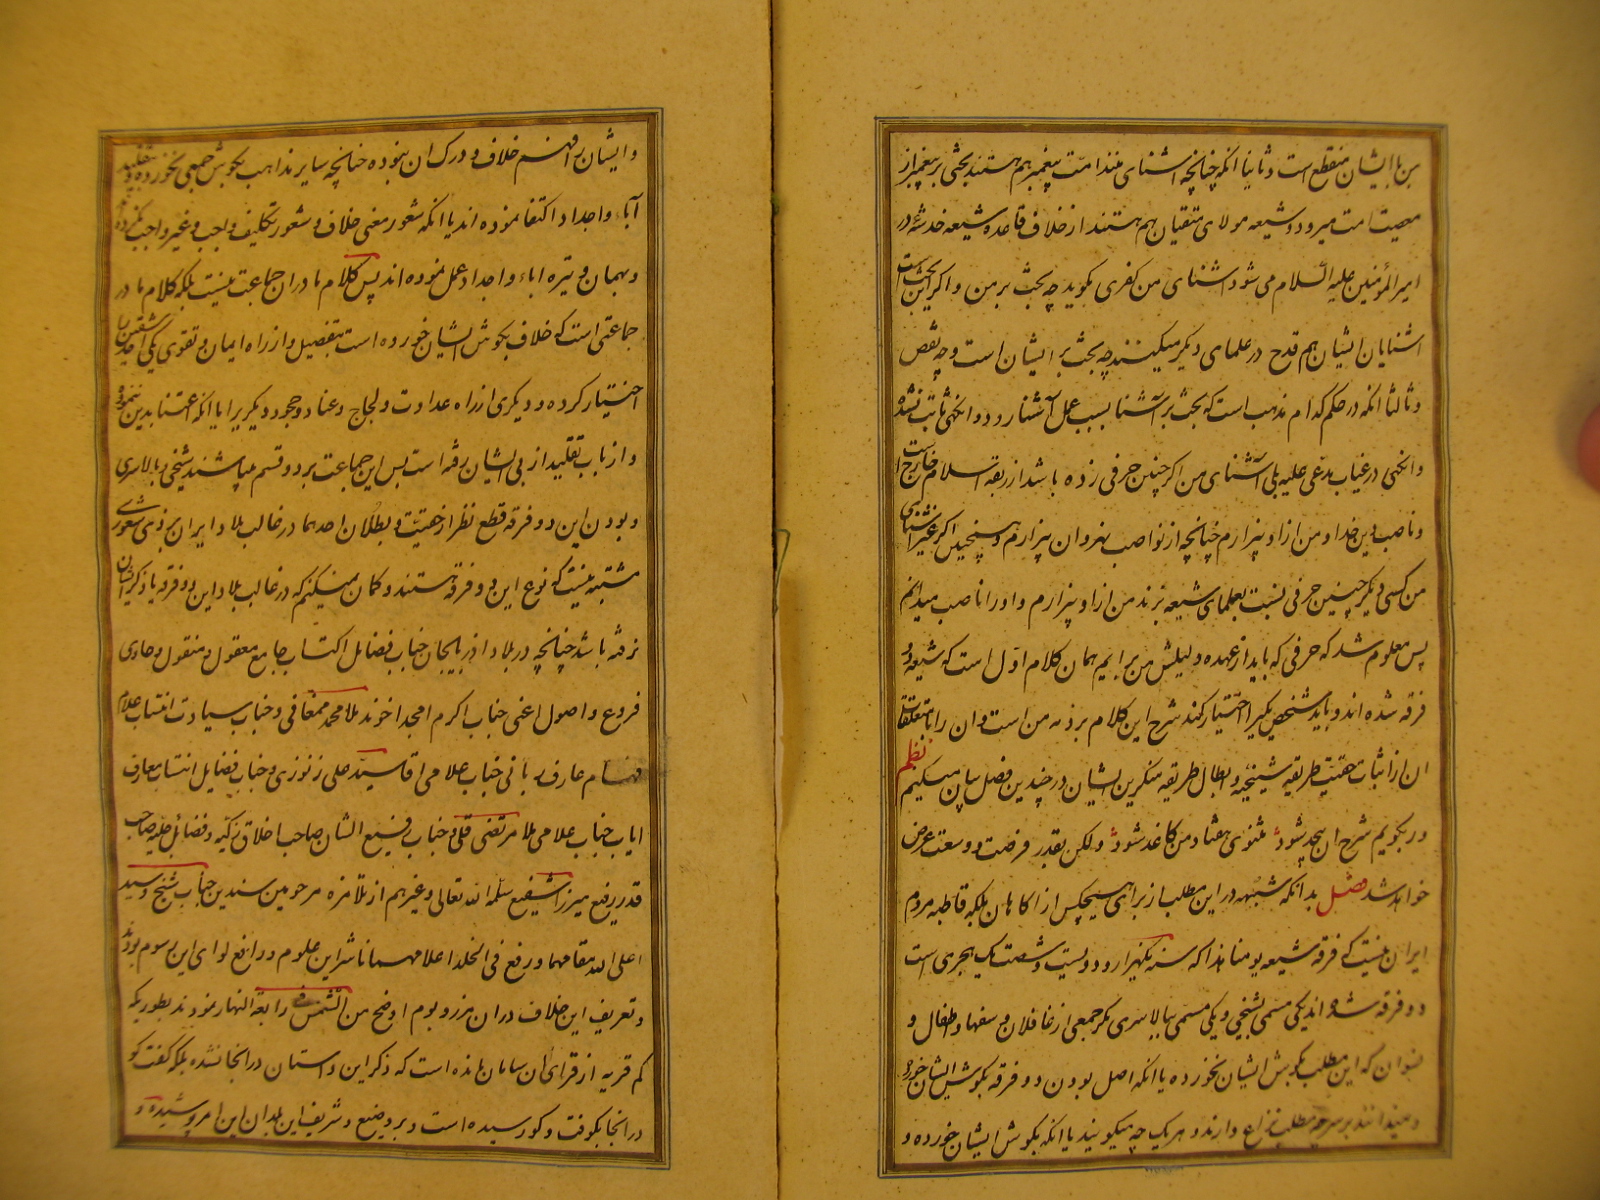 من با ایشان منقطع است و ثانیا انکه چنانچه اشنای منند امت پیغمبر هم هستند بحثی بر پیغمبر از
معصیت امت میرود و شیعه مولای متقیان هم هستند از خلاف قاعده شیعه خدشه در
امیر المؤمنین علیه السلام می شود اشنای من کفری بکوید چه بحث بر من و اکر این بحث است
اشنایان ایشان هم قدح در علمای دیکر میکینند چه بحث بر ایشان است و چه نقص
و ثالثا انکه در حکم کدام مذهب است که بحث بر آشنا بسبب عمل آشنا رود و انکهی ثابت نشده
و انکهی در غیاب مدعی علیه بلی آشنای من اکر چنین حرفی زده باشد از ربقه اسلام خارج است
و ناصب دین خدا و من از او بیزارم چنانچه از نواصب نهروان بیزارم و همچنین اکر غیر اشنای
من کسی دیکر چنین حرفی نسبت بعلمای شیعه بزند من از او بیزارم و او را ناصب میدانم
پس معلوم شد که حرفی که باید از عهده دلیلش من برایم همان کلام اول است که شیعه دو
فرقه شده اند و باید شخص یکیرا اختیار کند شرح این کلام بر ذمه من است و ان را با متعلقات
ان از اثبات حقیت طریقه شیخیه و ابطال طریقه منکرین ایشان در چندین فصل بیان میکنیم نظم
ور بکویم شرح ان بیحد شود مثنوی هفتاد من کاغذ شود و لکن بقدر فرصت و وسعت عرض
خواهد شد فصل بدانکه شبهه در این مطلب از برای هیچکس از اکاهان بلکه قاطبه مردم
ایران نیست که فرقه شیعه یومنا هذا که سنه یکهزار و دویست و شصت یک هجری است
دو فرقه شده اند یکی مسمی بشیخی و یکی مسمی ببالاسری مکر جمعی از غافلان و سفها و اطفال و
نسوان که این مطلب بکوش ایشان نخورده یا انکه اصل بودن دو فرقه بکوش ایشان خورده
و نمیدانند بر سر چه مطلب نزاع دارند و هر یک چه میکویند یا انکه بکوش ایشان خورده و
و ایشان را فهم خلاف و درک ان نبوده چنانچه سایر مذاهب بکوش جمعی نخورده و بتقلید
آباء و اجداد اکتفا نموده اند یا انکه شعور معنی خلاف و شعور تکلیف واجب و غیر واجب نکرده
و بهمان وتیره اباء و اجداد عمل نموده اند پس کلام ما در ان جماعت نیست بلکه کلام ما در
جماعتی است که خلاف بکوش ایشان خورده است بتفصیل و از راه ایمان و تقوی یکی احد شقین را
اختیار کرده و دیکری از راه عداوت و لجاج و عناد و جحود دیکریرا یا انکه اعتنا بدین ننموده
و از باب تقلید از پی ایشان رفته است پس این جماعت بر دو قسم میباشند شیخی و بالاسری
و بودن این دو فرقه قطع نظر از حقیت و بطلان احدهما در غالب بلاد ایران بر ذی شعوری
مشتبه نیست که نوع این دو فرقه هستند و کمان نمیکنم که در غالب بلاد این دو فرقه یا ذکر ایشان
نرفته باشد چنانچه در بلاد اذربایجان جناب فضایل اکتساب جامع معقول و منقول و حاوی
فروع و اصول اعنی جناب اکرم امجد اخوند ملا محمد ممقانی و جناب سیادت انتساب علام
فهام عارف ربانی جناب علامی اقا سید علی زنوزی و جناب فضایل انتساب معارف
ایاب جناب علامی ملا مرتضی قلی و جناب رفیع الشان صاحب اخلاق زکیه و فضایل علیه صاحب
قدر رفیع میرزا شفیع سلمه الله تعالی و غیر هم از تلامزه مرحومین سندین جناب شیخ و سید
اعلی الله مقامهما و رفع فی الخلد اعلامهما ناشر این علوم و رافع لوای این رسوم بودند
و تعریف این خلاف در ان مرز و بوم اوضح من الشمس فی رابعة النهار نمودند بطوریکه
کم قریه از قرای ان سامان مانده است که ذکر این داستان در انجا نشده بلکه کفت کو
در انجا بکوفت و کو رسیده است و بر وضیع و شریف این بلدان این امر پوشیده و